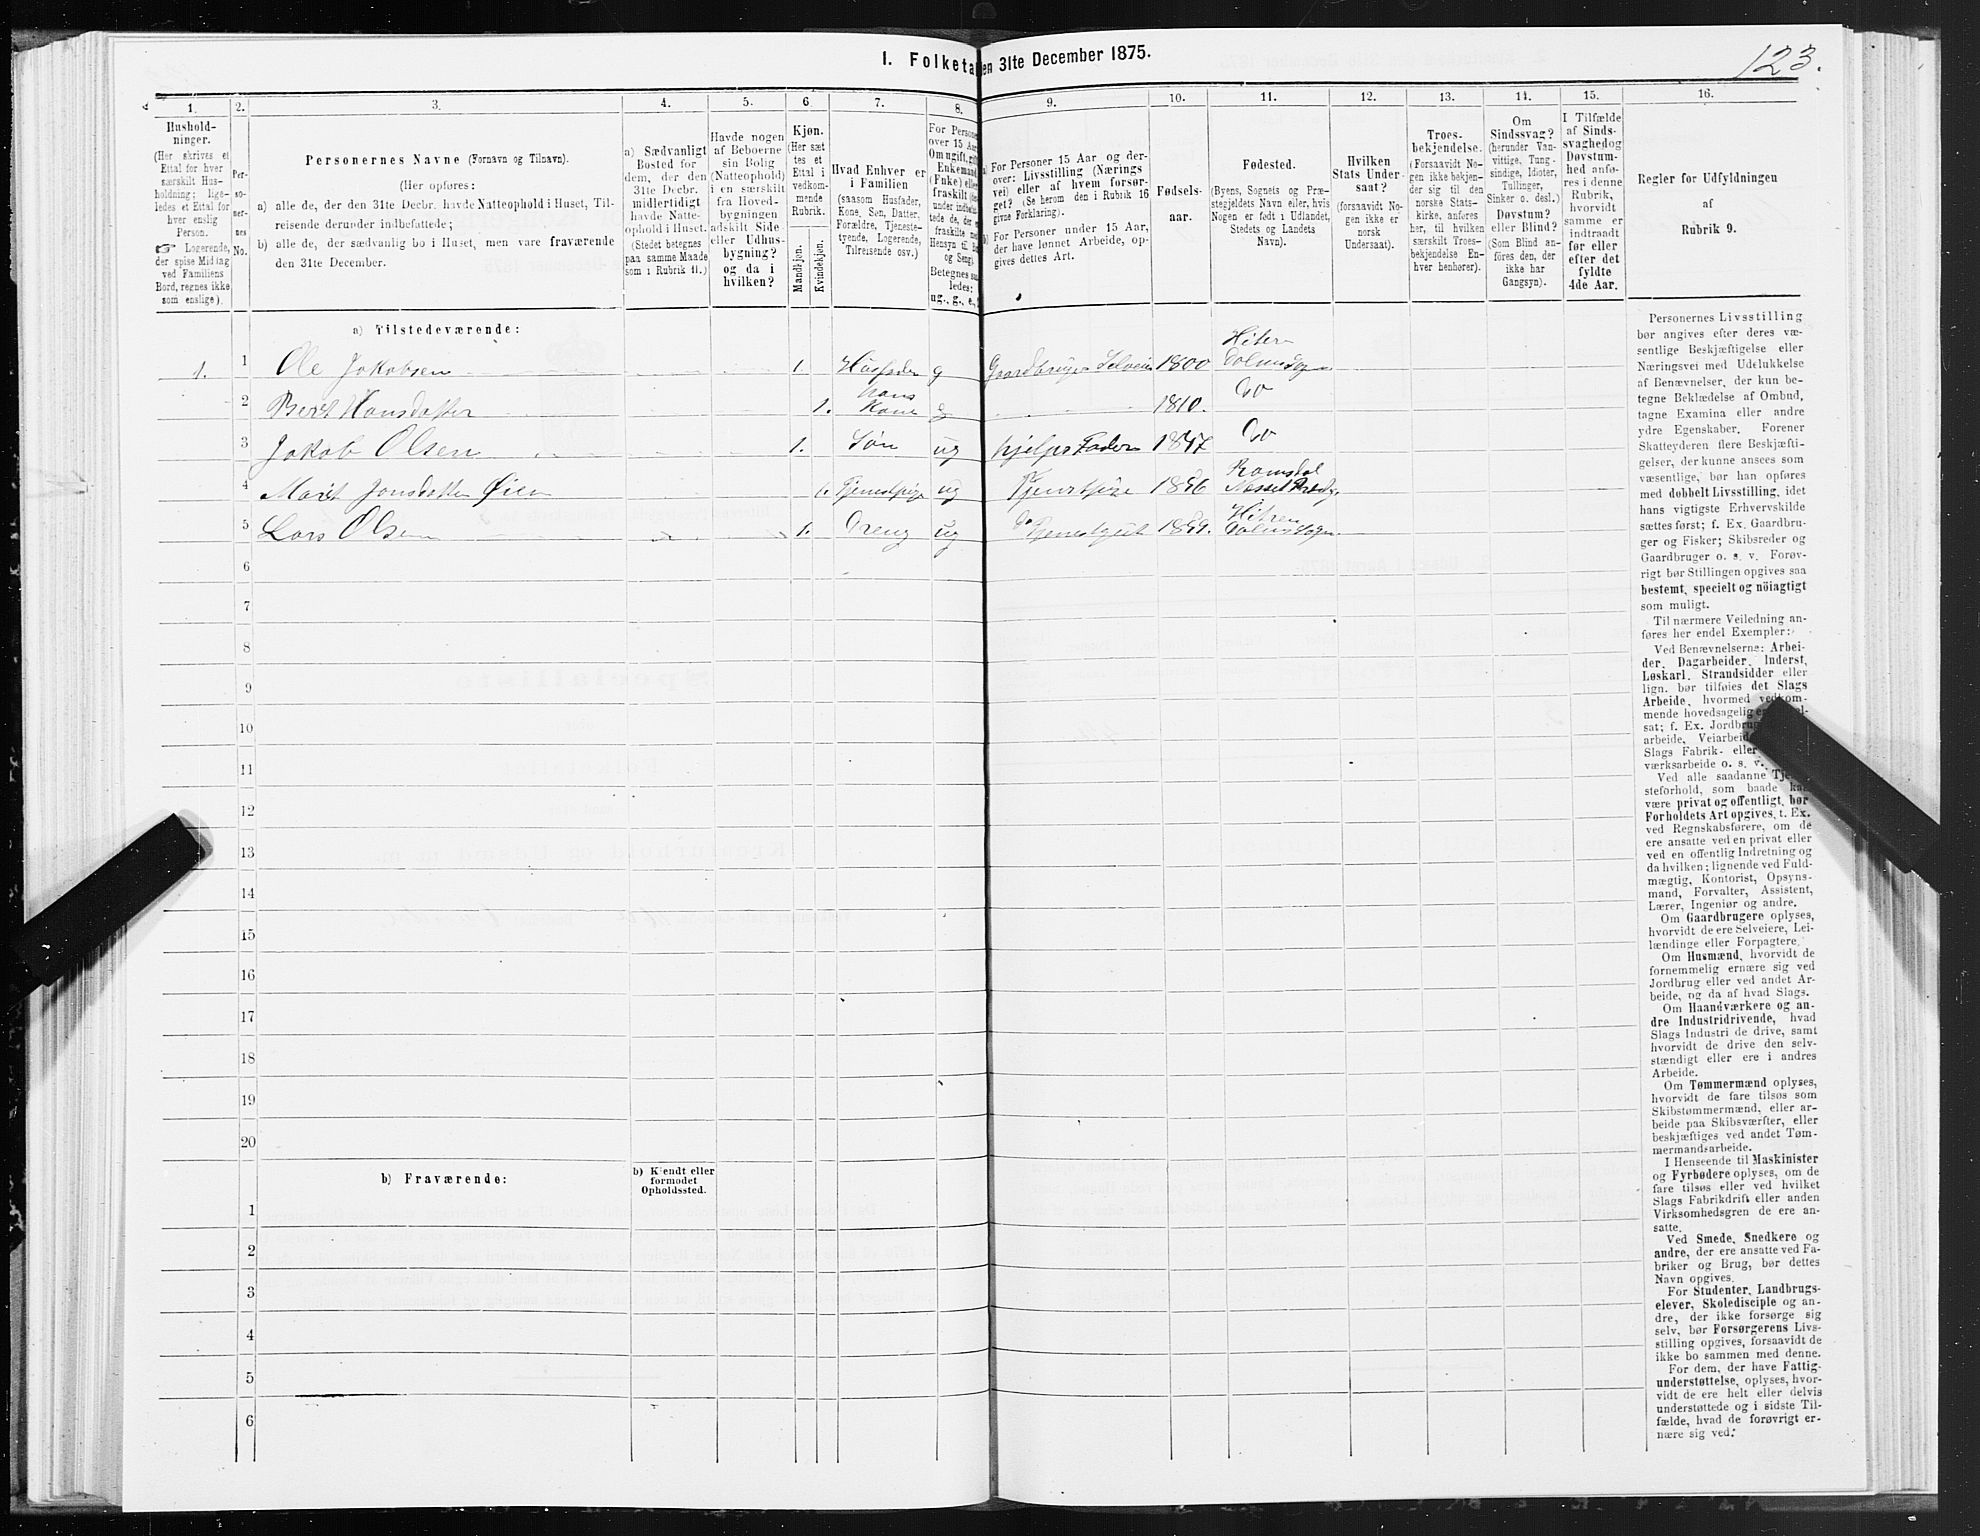 123.
I. Folketa en 31te December 1875.
1. 2. 3. 4. 5. 6 7. 8. 9. 10. 11. 12. 13. 14. 15. 16.
Hushold-
ninger.
(Her skrives et
Ettal for hver
særskilt Hus-
holdning; lige-
ledes et Ettal for
hver enslig
Person.
☞ Logerende,
der spise Middag
ved Familiens
Bord, regnes ikke
som enslige).
Per-
so-
ner-
nes
No.
Personernes Navne (Fornavn og Tilnavn).
(Her opføres:
a) alle de, der den 31te Decbr. havde Natteophold i Huset, Til-
reisende derunder indbefattede;
b) alle de, der sædvanlig bo i Huset, men vare fraværende
den 31te December.
a) Sædvanligt
Bosted for
dem, der den
31te Decbr.
midlertidigt
havde Natte-
ophold i Huset.
(Stedet betegnes
paa samme Maade
som i Rubrik 11.)
Havde nogen
af Beboerne
sin Bolig
(Natteophold)
i en særskilt
fra Hoved-
bygningen
adskilt Side-
eller Udhus-
bygning?
og da i
hvilken?
Kjøn.
(Her sæt
tes et
Ettal i
vedkom-
mende
Rubrik.
Mandkjøn.
Kvindekjøn.
Hvad Enhver er
i Familien
(saasom Husfader,
Kone, Søn, Datter,
Forældre, Tjeneste-
tyende, Logerende,
Tilreisende osv.)
For Persone
over 15 Aar
Om ugift, gift
Enkemand
(Enke) eller
fraskilt (der-
under indbefat-
tede de, der er
fraskilte med
Hensyn til Bo
og Seng).
Betegnes saa
ledes:
ug., g., e.,
a) For Personer 15 Aar og der-
over: Livsstilling (Nærings
vei) eller af hvem forsør-
get? (Se herom den i Rubrik 16
givne Forklaring).
b) For Personer under 15 Aar,
der have lønnet Arbeide, op-
gives dettes Art.
Fødsels-
aar.
Fødested.
(Byens, Sognets og Præ-
stegjeldets Navn eller, hvis
Nogen er født i Udlandet,
Stedets og Landets
Navn).
Hvilken
Stats Under-
saat?
(forsaavidt No-
gen ikke er
norsk
Undersaat).
Troes-
bekjendelse.
(Forsaavidt No-
gen ikke bekjen-
der sig til den
norske Stats-
kirke, anføres
her, til hvilken
særskilt Troes-
bekjendelse En-
hver henhører).
Om
Sindssvag?
(herunder Van-
vittige, Tung-
sindige, Idioter,
Tullinger,
Sinker o. desl.)
Døvstum?
eller Blind?
(Som Blind an-
føres den, der
ikke har
Gangsyn).
I Tilfælde
af Sinds-
svaghed og
Døvstum-
hed anfø-
res i denne
Rubrik,
hvorvidt
samme er
indtraadt
før eller
efter det
fyldte
4de Aar.
Regler for Udfyldningen
af
Rubrik 9.
a) Tilstedeværende:
1. 1 Ole Jakobsen 1. Husfader g Gaardbruger Selveier 1800 Hiteren Dolmsogn
2 Berit Hansdatter 1. hans Kone g 1810. Do
3 Jakob Olsen 1. Søn ug hjelper Fader 1847 Do
4 Marit Jonsdatter Øien 1. Tjenestpige ug Tjenestpige 1856 Romsdal Nesset Prestg
5 Lars Olsen 1. Dreng ug do Tjenestgut 1859. Hitren Dolmsogn
6
7
8
9
10
11
12
13
14
15
16
17
18
19
20
b) Fraværende:
b) Kjendt eller
formodet
Opholdssted.
1
2
3
4
5
6
Personernes Livsstilling
bør angives efter deres væ-
sentlige Beskjæftigelse eller
Næringsvei med Udelukkelse
af Benævnelser, der kun be-
tegne Beklædelse af Ombud,
tagne Examina eller andre
ydre Egenskaber. Forener
Skatteyderen flere Beskjæfti-
gelser, der kunne ansees som
væsentlige, bør han opføres
med dobbelt Livsstilling, idet
hans vigtigste Erhvervskilde
sættes først; f. Ex. Gaardbru-
ger og Fisker; Skibsreder og
Gaardbruger o. s. v. Forøv-
rigt bør Stillingen opgives saa
bestemt, specielt og nöiagtigt
som muligt.
Til nærmere Veiledning an-
føres her endel Exempler:
Ved Benævnelserne: Arbei-
der, Dagarbeider, Inderst,
Løskarl, Strandsidder eller
lign. bør tilføies det Slags
Arbeide, hvormed vedkom-
mende hovedsagelig er
sat; f. Ex. Jordbru
arbeide, Veiarbeid
Slags Fabrik- eller
værksarbeide o. s. v.
Ved alle saadanne Tje
steforhold, som baade kan
være privat og offentligt, bør
Forholdets Art opgives, t. Ex.
ved Regnskabsførere, om de
ere ansatte ved en privat eller
ved en offentlig Indretning og
da hvilken; lignende ved Fuld-
mægtig, Kontorist, Opsyns-
mand, Forvalter, Assistent,
Lærer, Ingeniør og andre.
Om Gaardbrugere oplyses,
hvorvidt de ere Selveiere, Lei-
lændinge eller Forpagtere.
Om Husmænd, hvorvidt de
fornemmelig ernære sig ved
Jordbrug eller ved andet Ar-
beide, og da af hvad Slags.
Om Haandværkere og an-
dre Industridrivende, hvad
Slags Industri de drive, samt
hvorvidt de drive den selv-
stændigt eller ere i andres
Arbeide.
Om Tømmermænd oplyses,
hvorvidt de fare tilsøs som
Skibstømmermænd, eller ar-
beide paa Skibsværfter, eller
beskjæftiges ved andet Tøm-
mermandsarbeide.
I Henseende til Maskinister
og Fyrbødere oplyses, om de
fare tilsøs eller ved hvilket
Slags Fabrikdrift eller anden
Virksomhedsgren de ere an-
satte.
Ved Smede, Snedkere og
andre, der ere ansatte ved Fa-
briker og Brug, bør dettes
Navn opgives.
For Studenter, Landbrugs-
elever, Skoledisciple og an-
dre, der ikke forsørge sig
selv, bør Forsørgerens Livs-
stilling opgives, forsaavidt de
ikke bo sammen med denne.
For dem, der have Fattig-
understøttelse, oplyses, hvor-
vidt de ere helt eller delvis
understøttede og i sidste Til-
fælde, hvad de forøvrigt er-
nære sig ved.